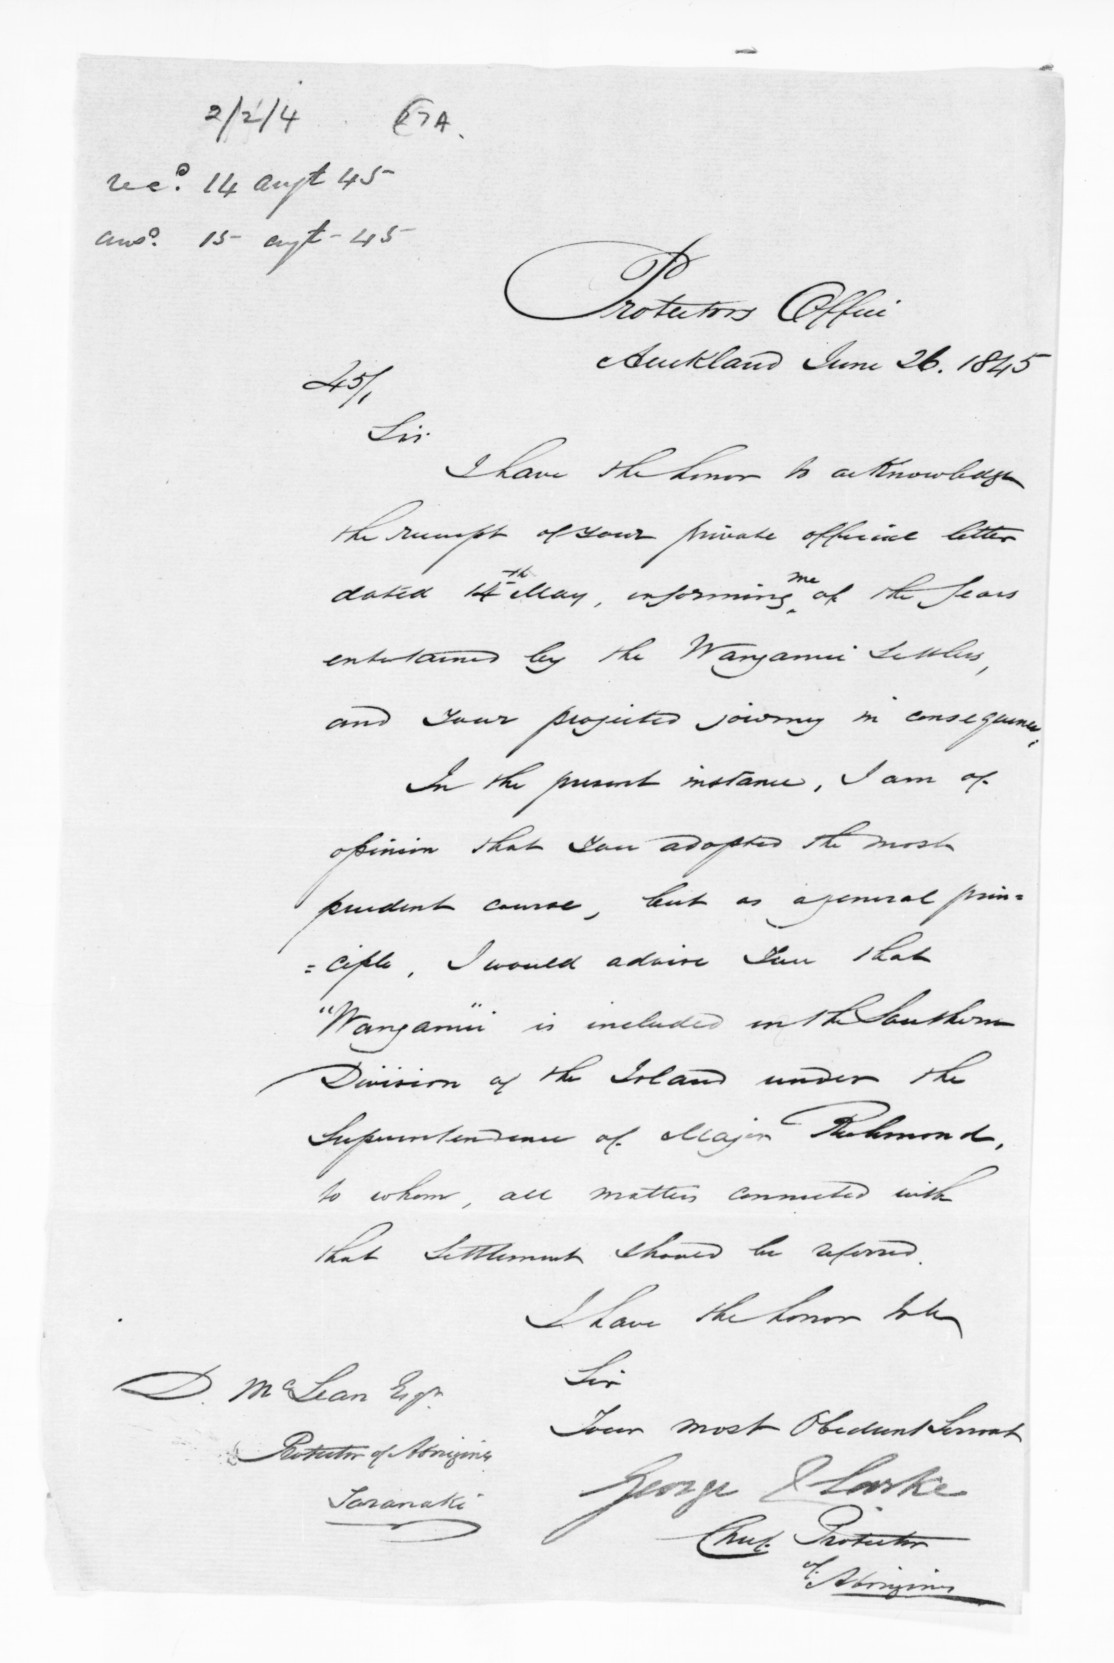 2/2/4 67A.
recd. 14 augt 45
ansd. 15 augt - 45
Protectors Office
Auckland June 26. 1845
45/1
Sir.
I have the honor to acknowledge
the receipt of your private official letter
dated 14th May, informing me of the fears
entertained by the Wanganui Settlers,
and your projected journey in consequence.
In the present instance, I am of
opinion that you adopted the most
prudent course, but as a general prin=
=ciple, I would advise you that
"Wanganui" is included in the Southern
Division of the Island under the
Superintendence of Major Richmond,
to whom, all matters connected with
that Settlement should be referred.
I have the honor to be
Sir
Your most Obedient Servant
George Clarke
Chief Protector
of Aborigines
D. McLean Esqr.
Protector of Aborigines
Taranaki